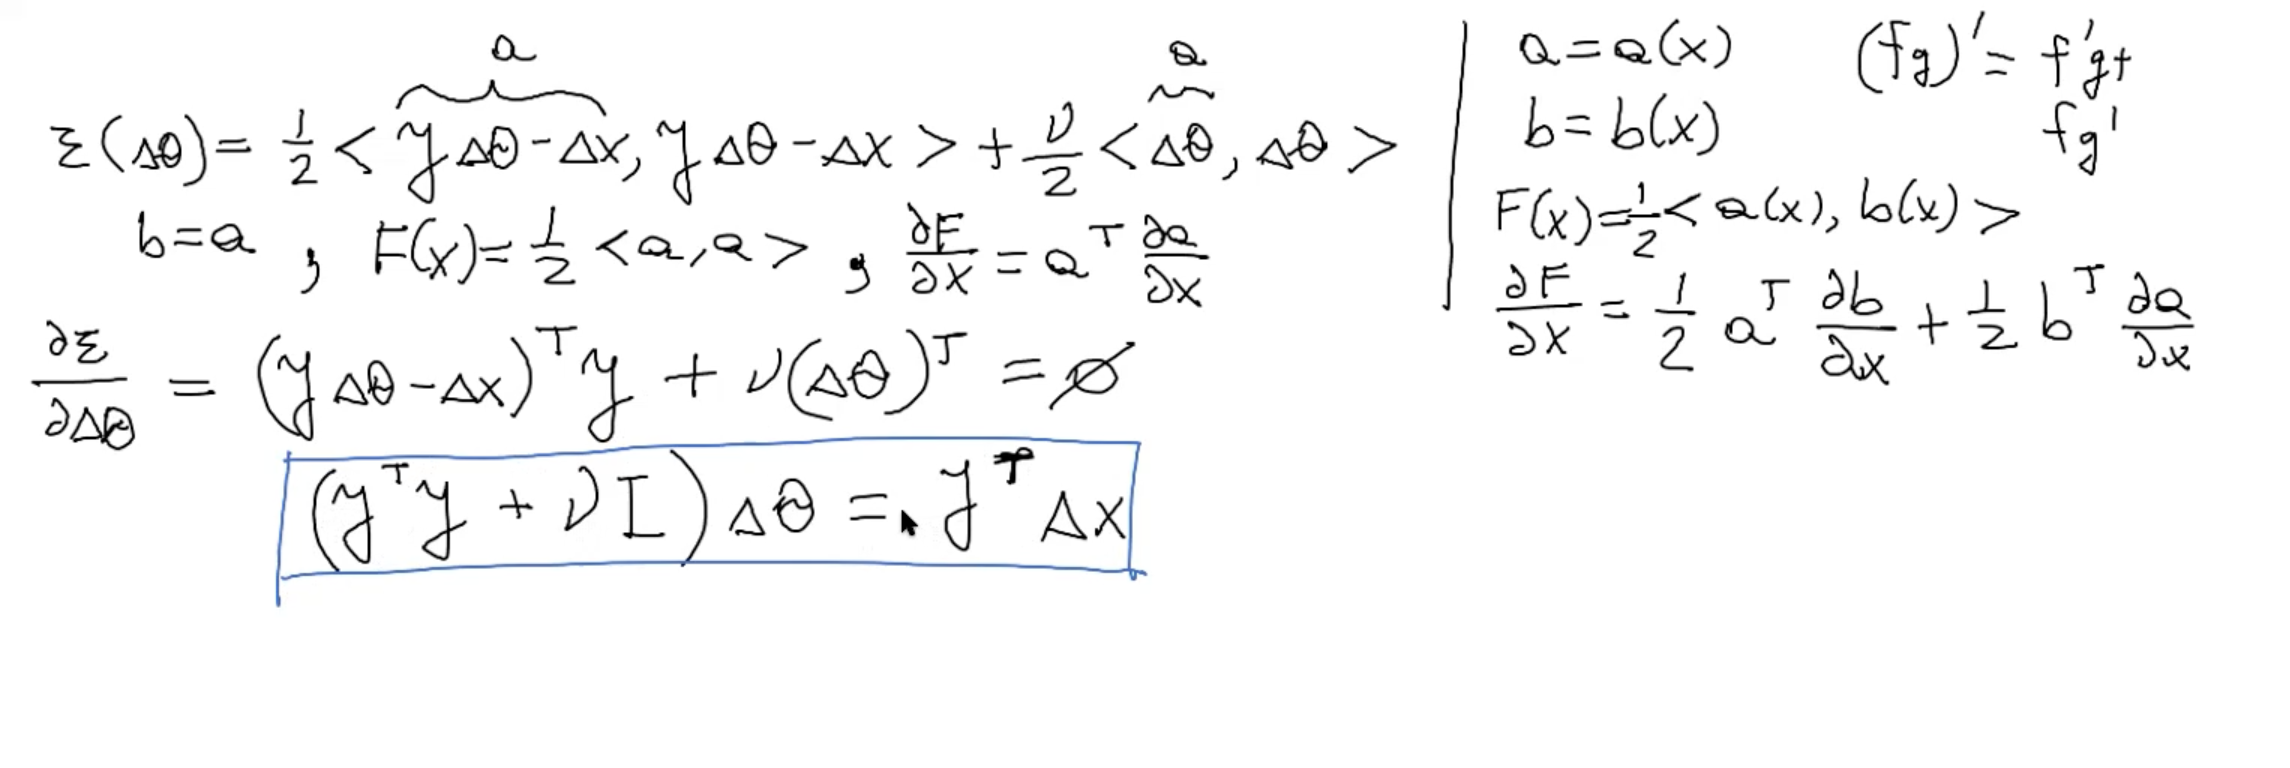 a a
Ɛ(Δθ) = 1/2 < y Δθ - Δx, y Δθ - Δx > + ν/2 < Δθ, Δθ >
b = a , F(x) = 1/2 < a, a > , ∂F/∂x = a^T ∂a/∂x
∂Ɛ/∂Δθ = (y Δθ - Δx)^T y + ν(Δθ)^T = ∅
(y^T y + ν I) Δθ = y^T Δx
a = a(x) (fg)' = f'g +
b = b(x) fg'
F(x) = 1/2 < a(x), b(x) >
∂F/∂x = 1/2 a^T ∂b/∂x + 1/2 b^T ∂a/∂x